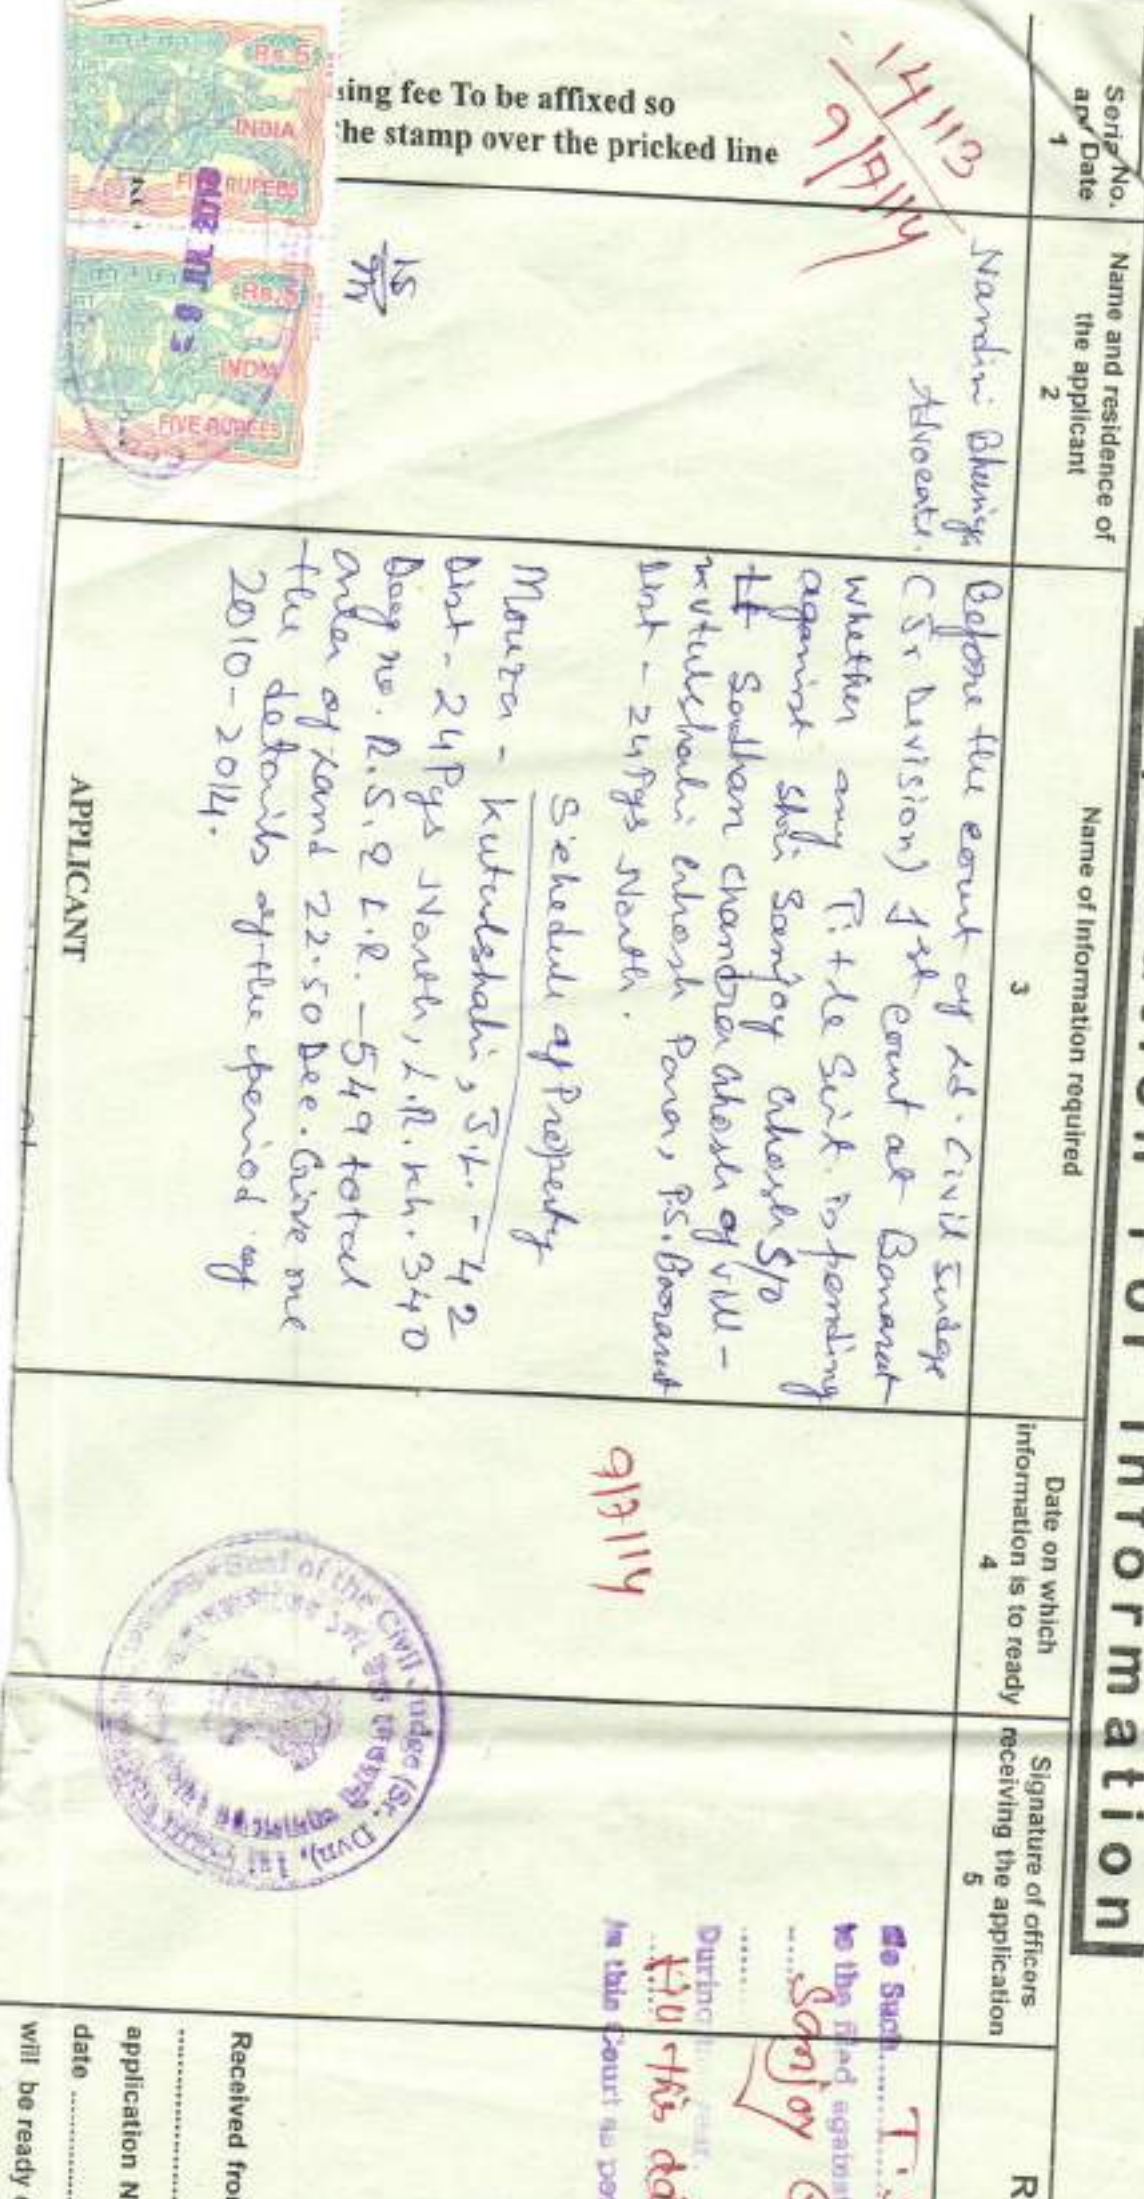 for Information
Serial No. and Date
1
Name and residence of the applicant
2
Name of Information required
3
Date on which information is to ready
4
Signature of officers receiving the application
5
R
14113
9/7/14
Nandini Bhuniya
Advocate.
Before the court of Ld. Civil Judge
(Sr Devision) 1st Court at Barasat
whether any Title Suit is pending
against Shri Sanjoy Ghosh S/o
Sadhan Chandra Ghosh of vill -
Kutulshahi Ghosh Para, P.S. Barasat
Dist - 24 Pgs North.
Schedule of Property
Mouza - Kutulshahi, J.L. - 42
Dist - 24 Pgs North, L.R. Kh. 340
Dag no. R.S. & L.R. - 549 total
area of Land 22.50 Dec. Give me
the details of the period of
2010-2014.
APPLICANT
9/7/14
ing fee To be affixed so
he stamp over the pricked line
Rs.5
INDIA
FIVE RUPEES
Rs.5
INDIA
FIVE RUPEES
Seal of the Civil Judge (Sr. Dvn), 1st
No Such
to the filed against
Sanjoy
During
till this da
In this Court as per
Received fro
application N
date
will be ready